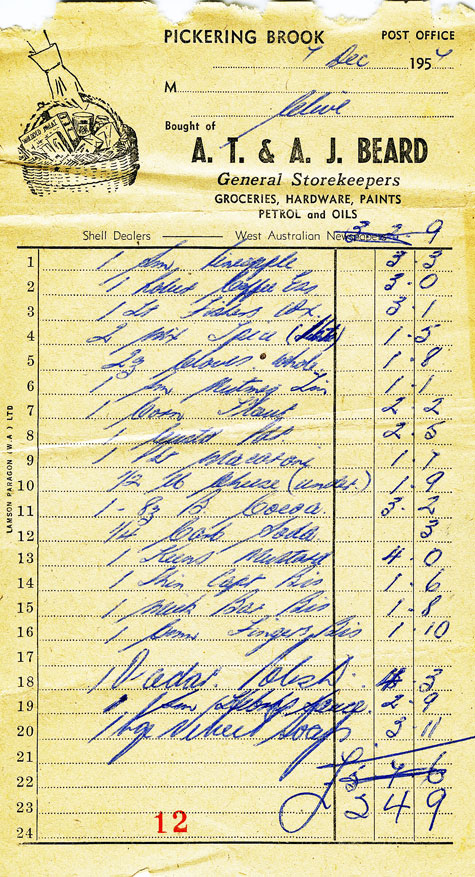 PICKERING BROOK POST OFFICE
7 Dec 1954
M
Clive
Bought of
A. T. & A. J. BEARD
General Storekeepers
GROCERIES, HARDWARE, PAINTS
PETROL and OILS
Shell Dealers West Australian Newspapers 3 2 9
1 1 Pineapple 3 . 3
2 1 Coffee Ess 3 . 0
3 1 3 . 1
4 2 mix Spice 1 . 5
5 2 Cloves whole 1 . 8
6 1 Nutmeg 1 . 1
7 1 Corn Flour 2 . 2
8 1 Custd 2 . 5
9 1 Macaroni 1 . 7
10 1/2 lb Cheese 1 . 9
11 1 - 8 B. Cocoa. 3 . 2
12 1/4 Carb Soda 3
13 1 Keens Mustard 4 . 0
14 1 Bis 1 . 6
15 1 Bis 1 . 8
16 1 Fingers Bis 1 . 10
17
18 1 Polish . 3
19 1 Sauce. 2 . 9
20 1 lge Velvet Soap 3 . 11
21
22
23 £ 2 4 9
24
12
LAMSON PARAGON (W.A.) LTD